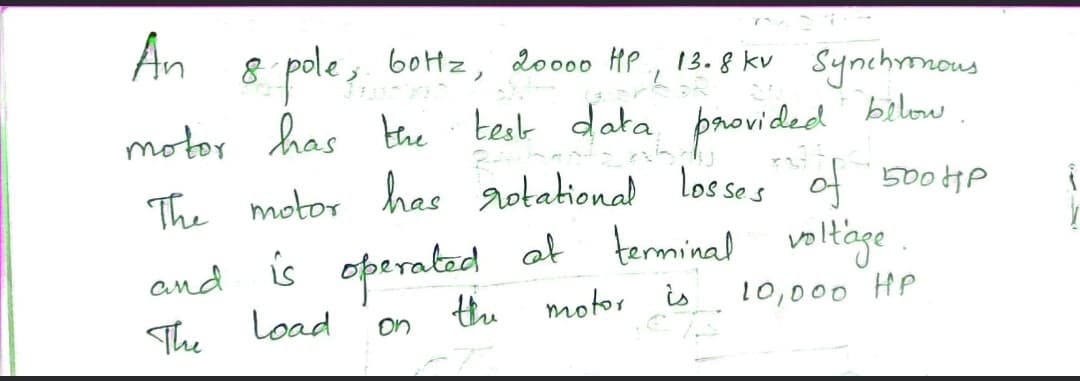 An 8 pole, 60Hz, 20000 HP, 13.8 kv Synchronous
motor has the test data provided below.
The motor has rotational losses of 500 HP
and is operated at terminal voltage.
The Load on the motor is 10,000 HP